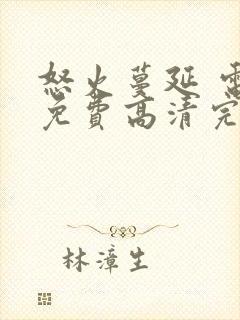 怒火蔓延 電
免費高清完
林漳生